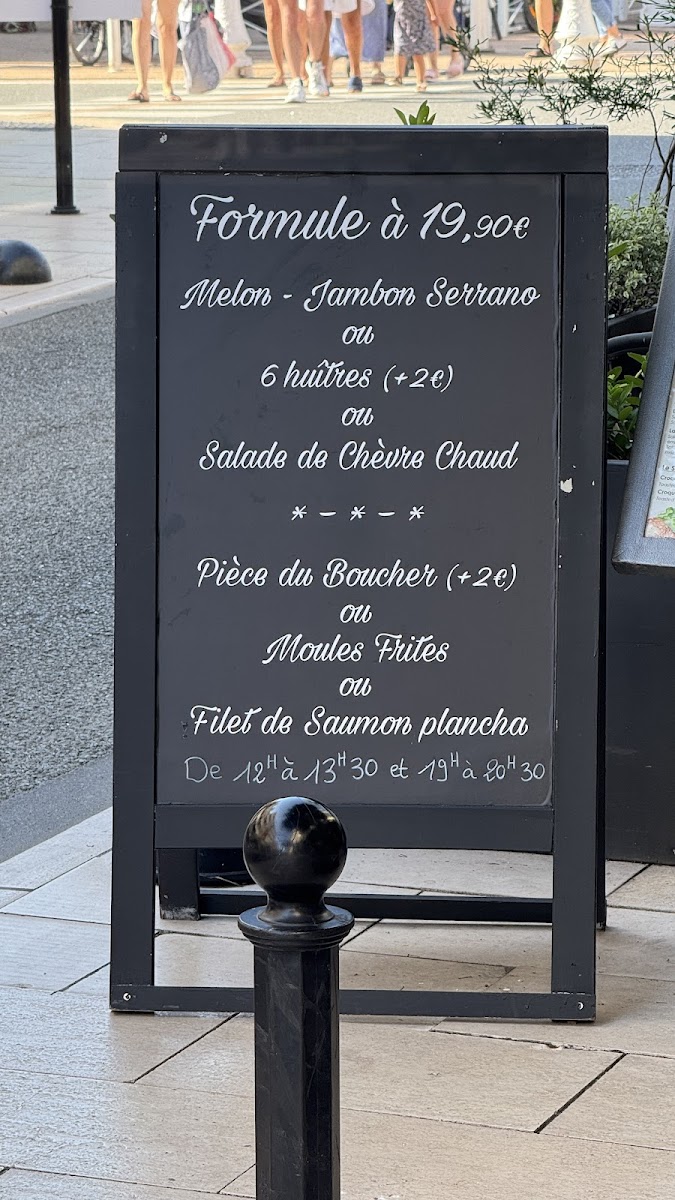 Formule à 19,90€
Melon - Jambon Serrano
ou
6 huîtres (+2€)
ou
Salade de Chèvre Chaud
* - * - *
Pièce du Boucher (+2€)
ou
Moules Frites
ou
Filet de Saumon plancha
De 12H à 13H30 et 19H à 20H30